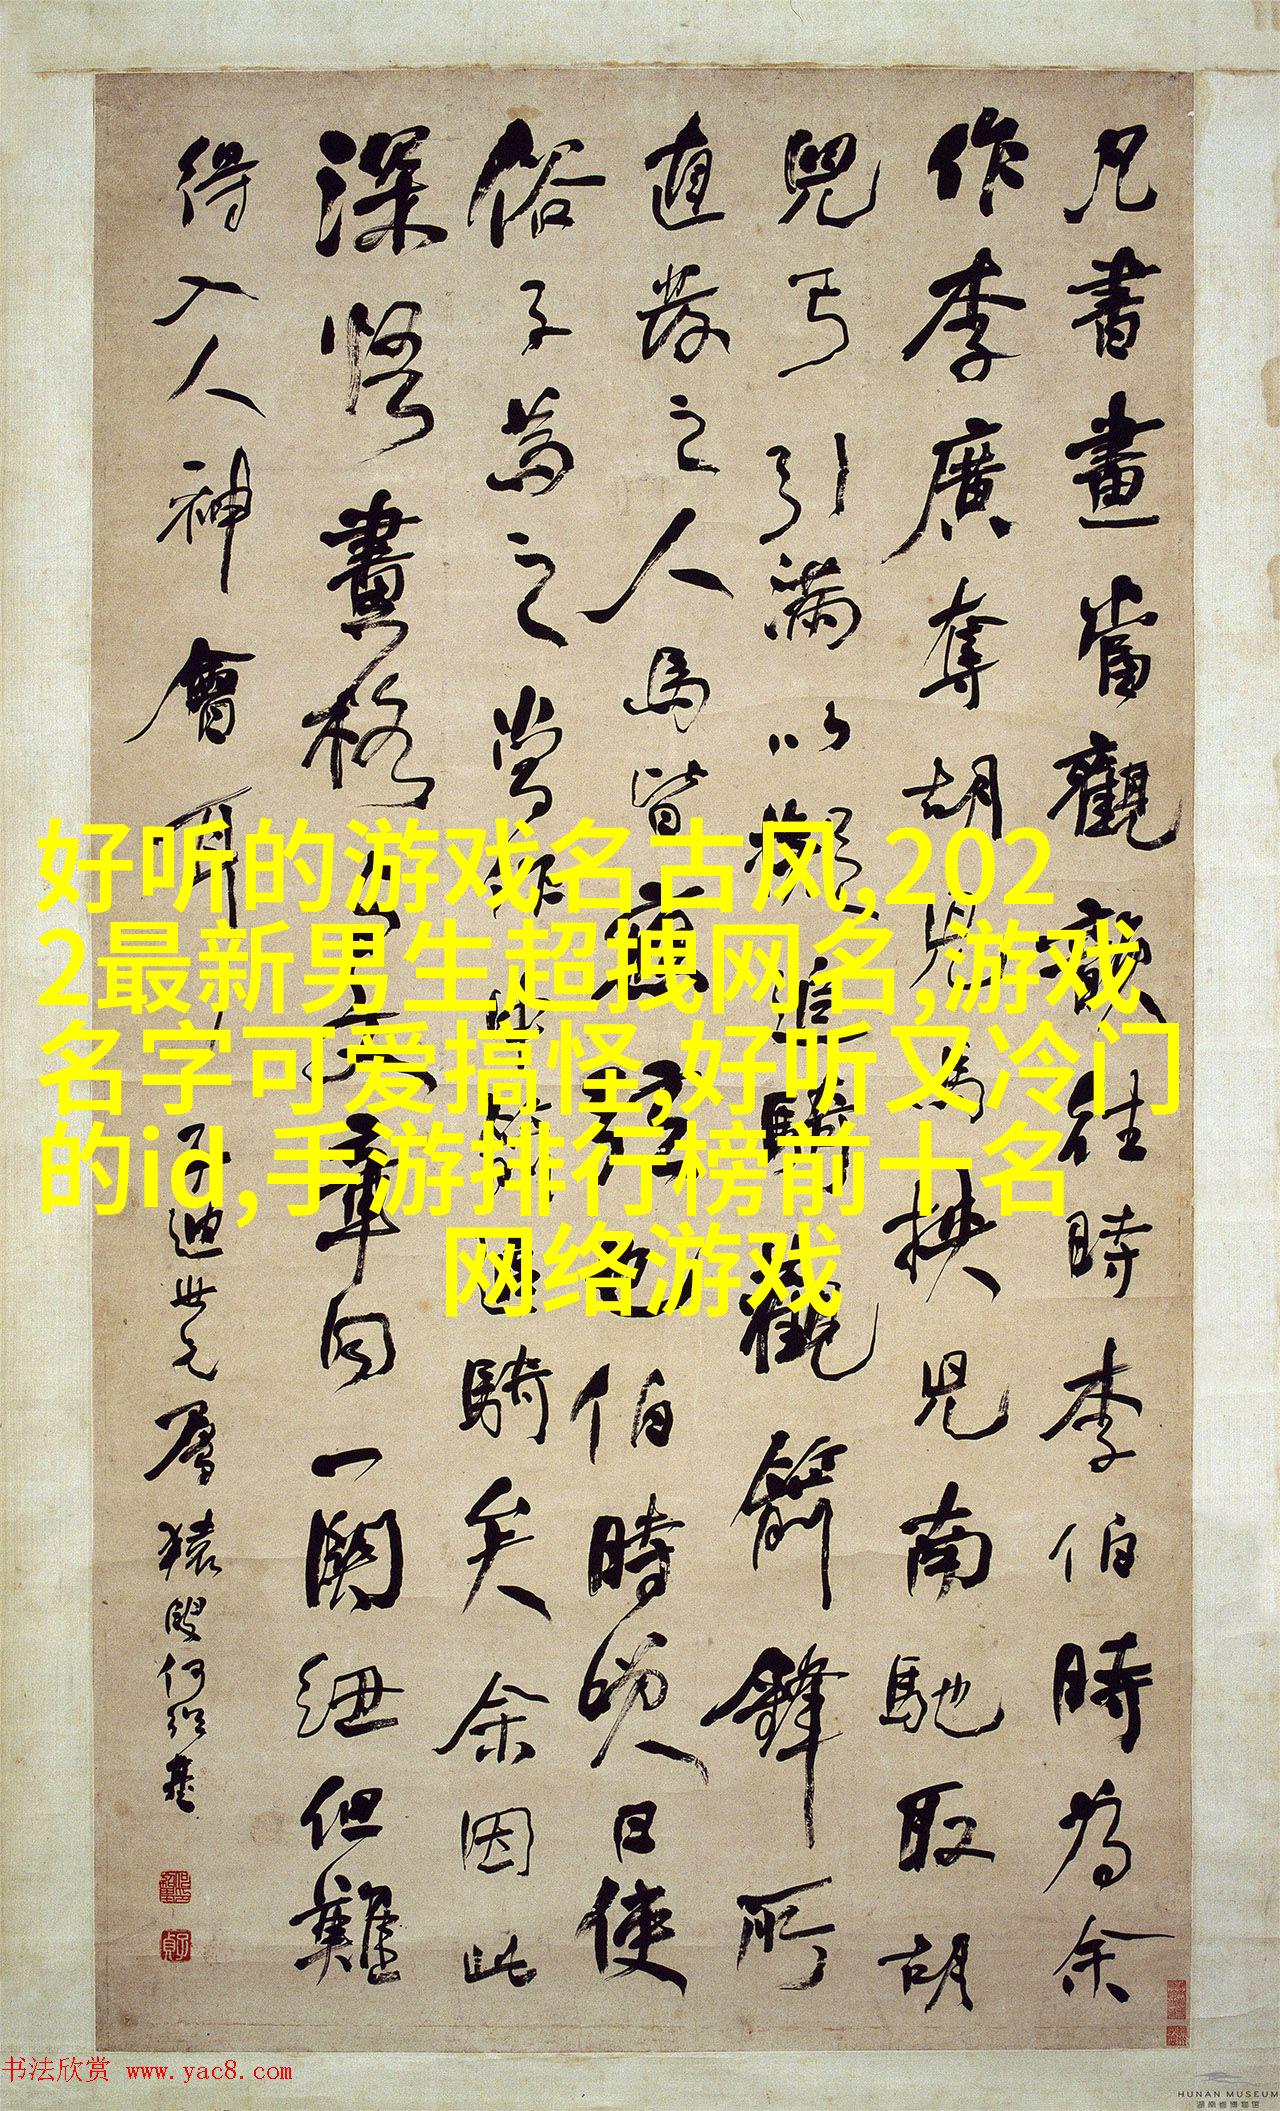 好听的游戏名古风,202
2最新男生超拽网名,游戏
名字可爱搞怪,好听又冷门
的id,手游排行榜前十名
网络游戏
凡書畫當觀韻往時李伯時為余
作李廣奪胡兒馬挾兒南馳取胡
兒弓引滿以擬追騎觀箭鋒所
直發之人馬皆應弦也伯時笑曰使
俗子為之當作中箭追騎矣余因此
深悟畫格此與文章同一關紐但難
得入人神會耳
子迪世元屬 猿叟何紹基
书法欣赏 www.yac8.com
HUNAN MUSEUM
湖南省博物馆